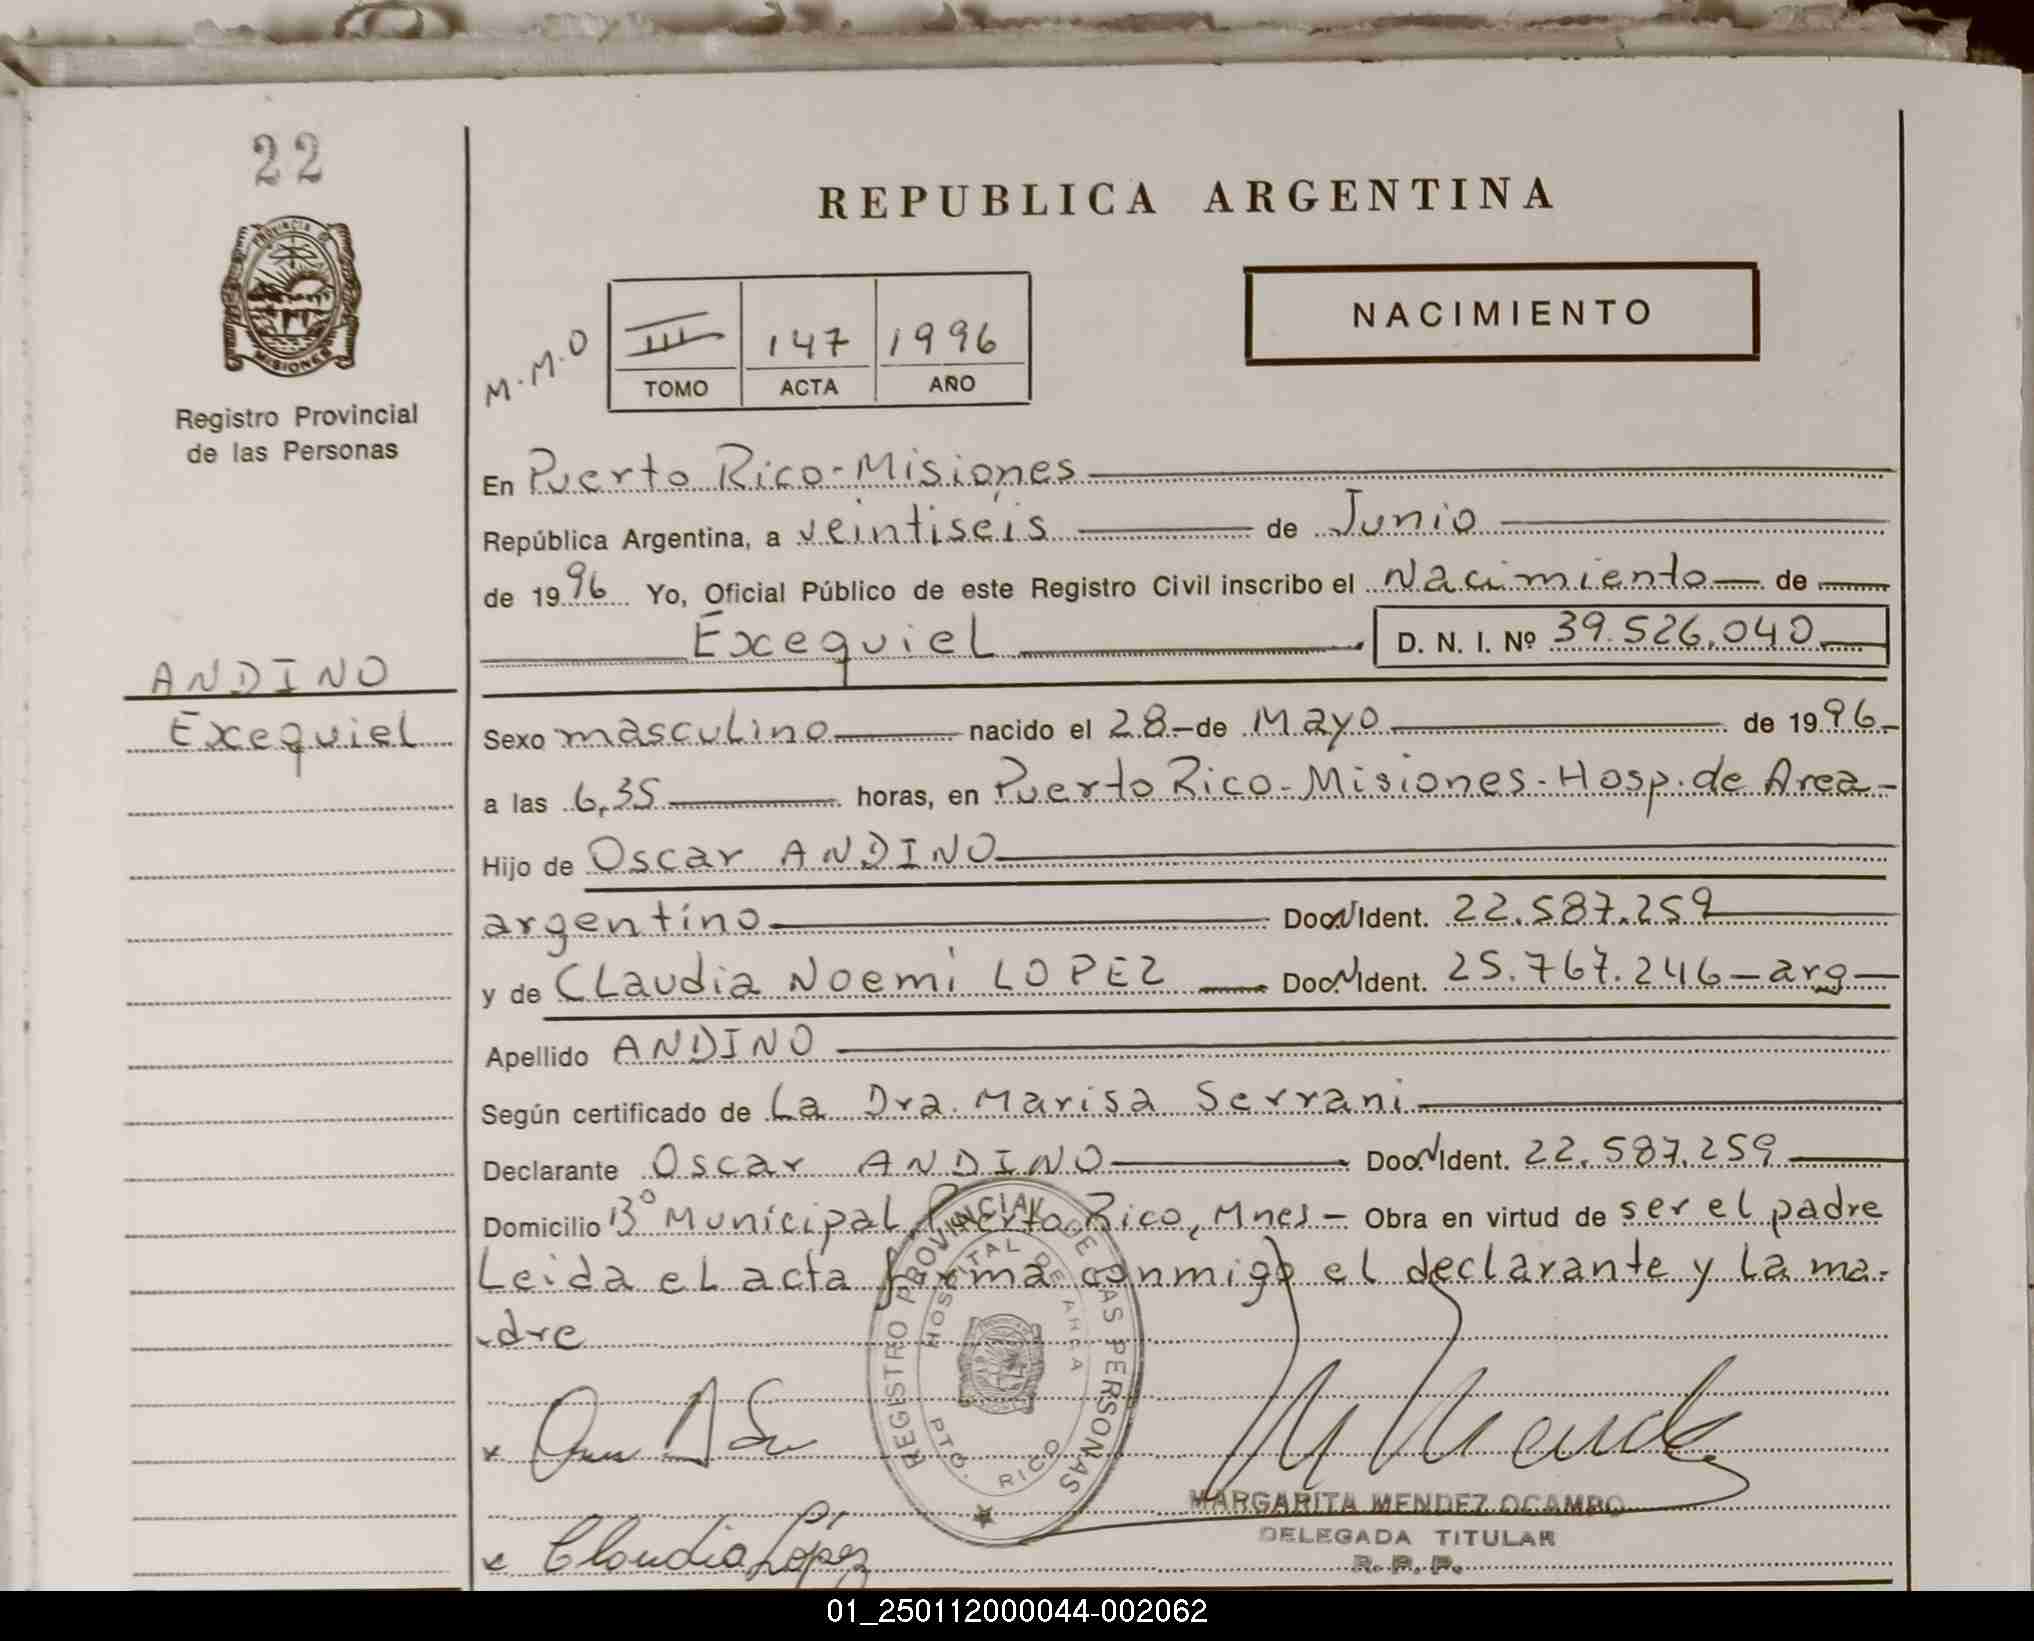 22
REPUBLICA ARGENTINA
PROVINCIA DE
MISIONES
NACIMIENTO
M.M.O
III 147 1996
TOMO ACTA AÑO
Registro Provincial
de las Personas
En Puerto Rico-Misiones
República Argentina, a veintiséis de Junio
de 1996 Yo, Oficial Público de este Registro Civil inscribo el Nacimiento de
Exequiel D. N. I. Nº 39.526.040
ANDINO
Exequiel
Sexo masculino nacido el 28 de Mayo de 1996
a las 6,35 horas, en Puerto Rico-Misiones-Hosp. de Area
Hijo de Oscar ANDINO
argentino Doc. N Ident. 22.587.259
y de Claudia Noemi LOPEZ Doc. N Ident. 25.767.246-arg
Apellido ANDINO
Según certificado de La Dra. Marisa Serrani
Declarante Oscar ANDINO Doc. N Ident. 22.587.259
Domicilio Bº Municipal, Puerto Rico, Mnes- Obra en virtud de ser el padre
Leida el acta firma conmigo el declarante y la ma-
dre
REGISTRO PROVINCIAL DE LAS PERSONAS
HOSPITAL DE AREA
PTO. RICO
x
MARGARITA MENDEZ OCAMPO
DELEGADA TITULAR
R. P. P.
x Claudia López
01_250112000044-002062